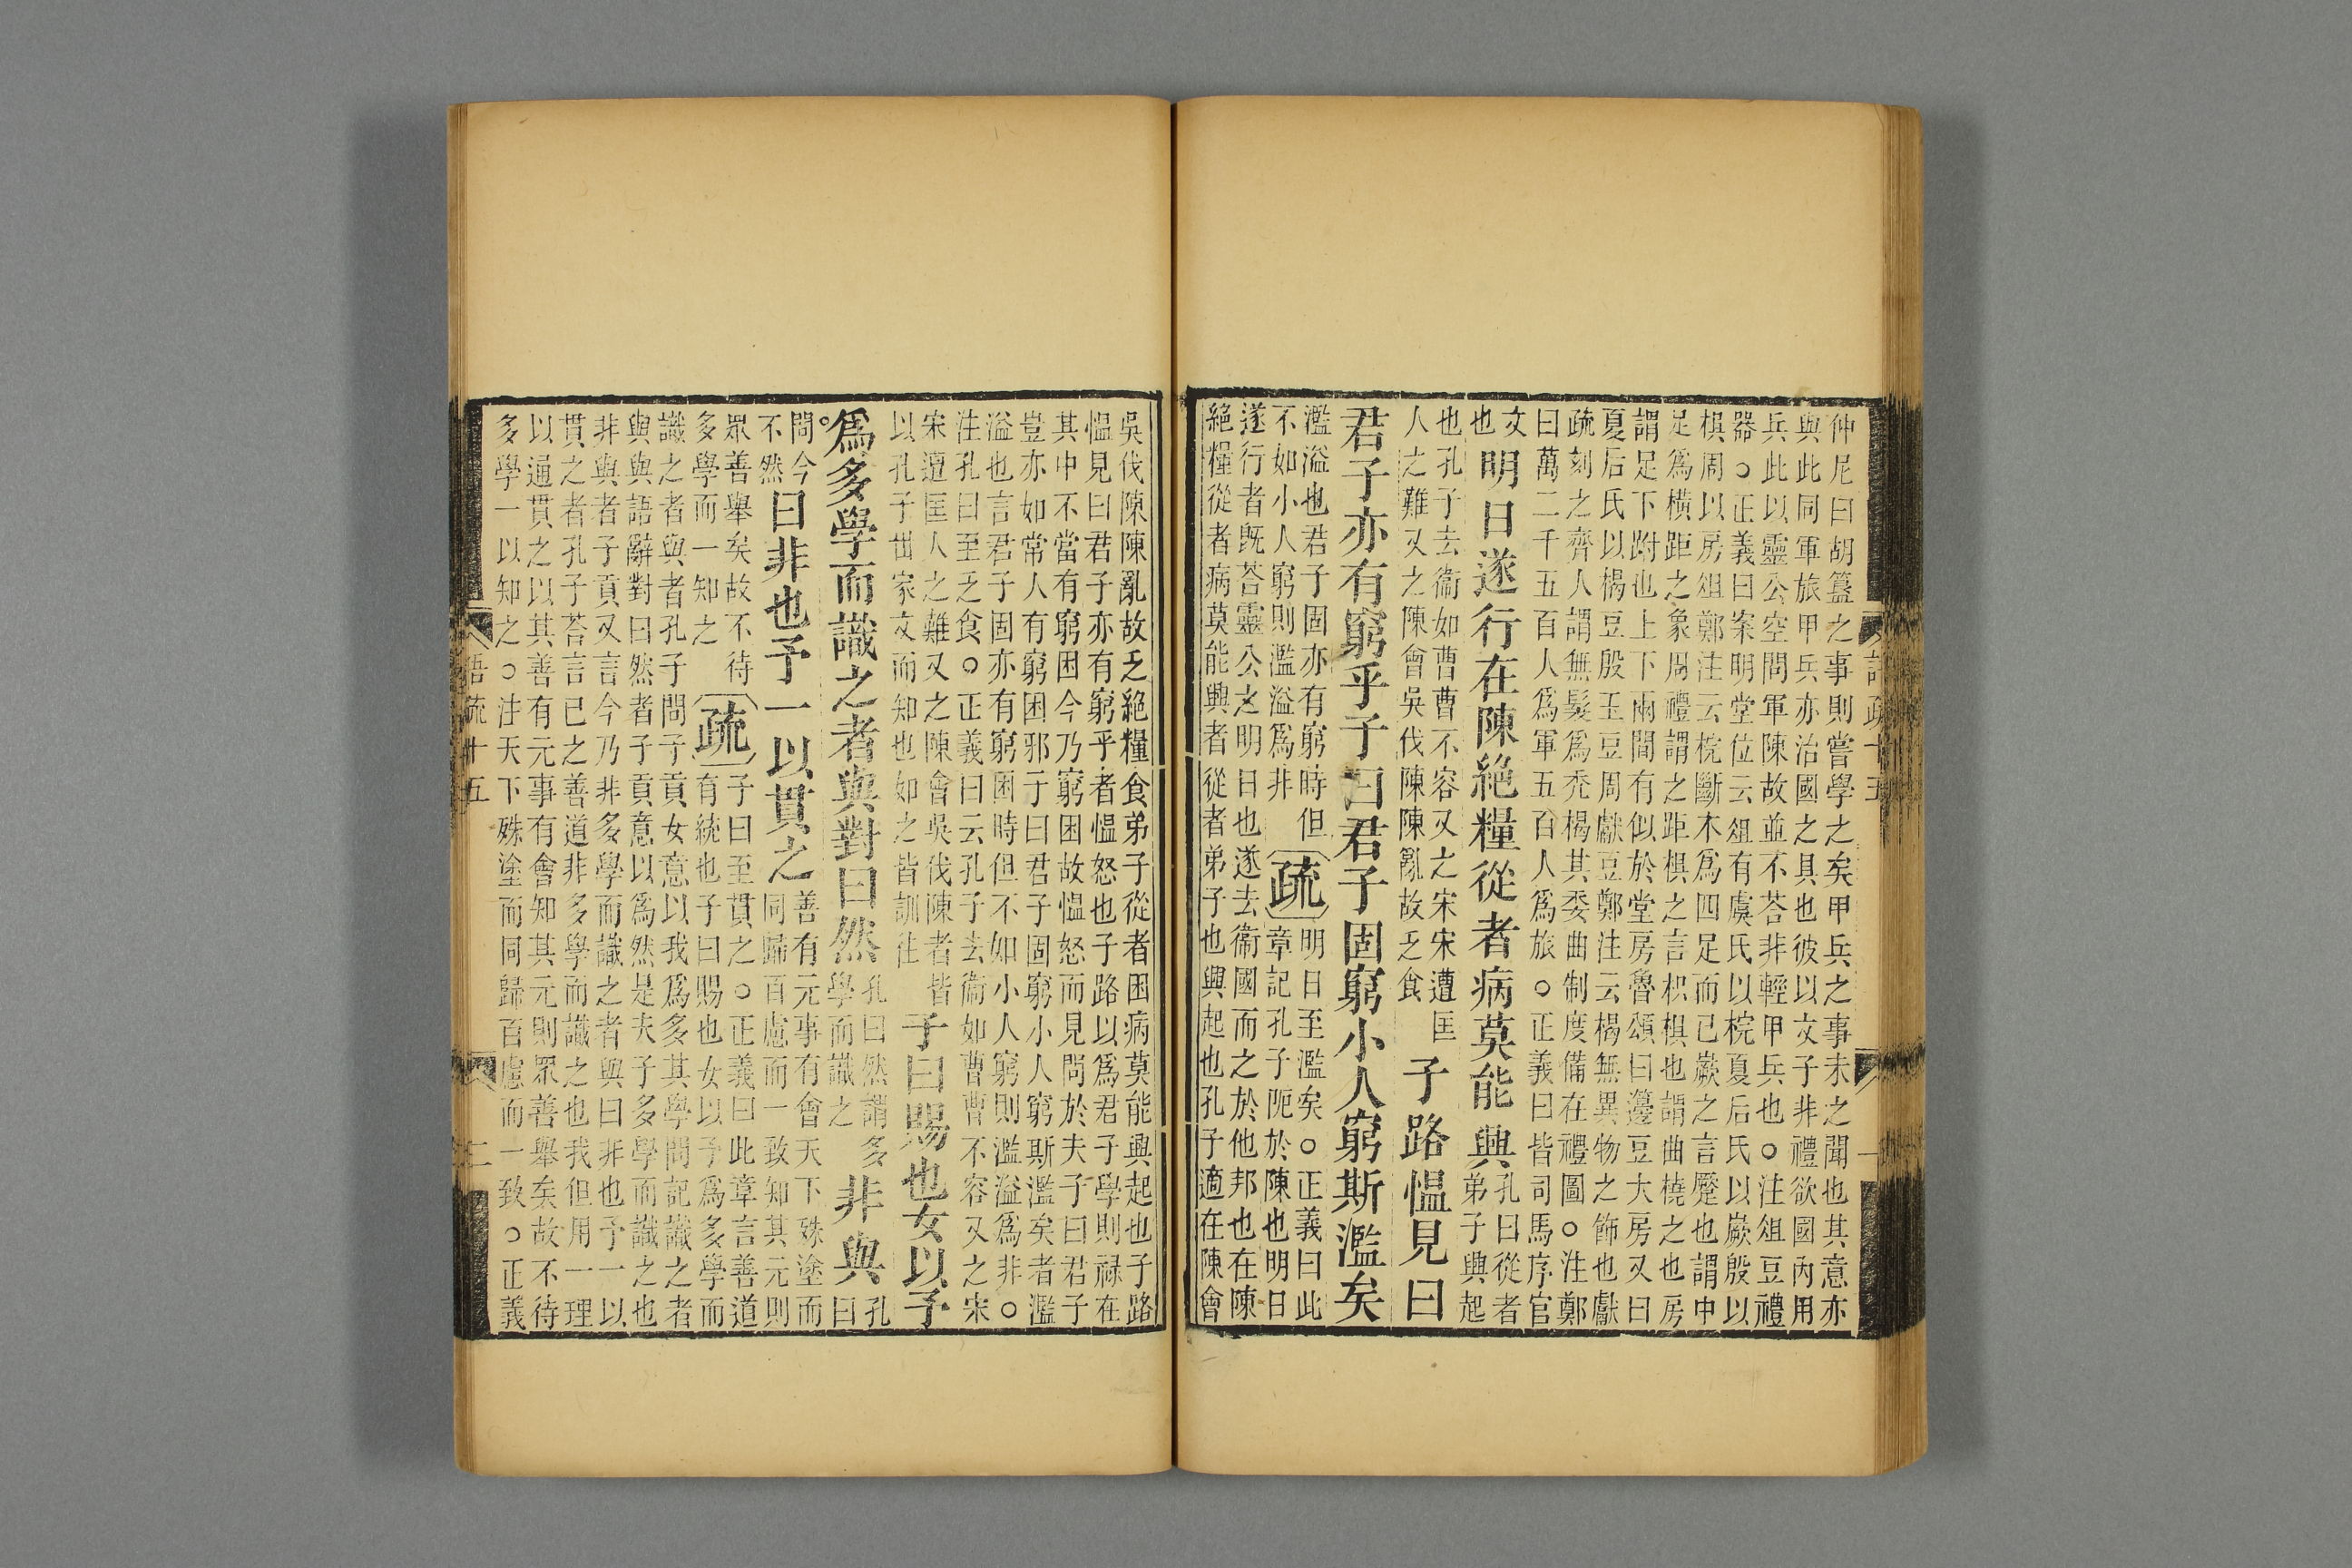 仲尼曰胡簋之事則嘗學之矣甲兵之事未之聞也其意亦
與此同軍旅甲兵亦治國之具也彼以文子非禮欲國內用
兵此以靈公空問軍陳故並不荅非輕甲兵也○注俎豆禮
器○正義曰案明堂位云俎有虞氏以梡夏后氏以嶡殷以
椇周以房俎鄭注云梡斷木爲四足而已嶡之言蹷也謂中
足爲橫距之象周禮謂之距椇之言枳椇也謂曲橈之也房
謂足下跗也上下兩間有似於堂房魯頌曰籩豆大房又曰
夏后氏以楬豆殷玉豆周獻豆鄭注云楬無異物之飾也獻
疏刻之齊人謂無髮爲禿楬其委曲制度備在禮圖○注鄭
曰萬二千五百人爲軍五百人爲旅○正義曰皆司馬序官
文
也
明日遂行在陳絕糧從者病莫能興
孔曰從者
弟子興起
也孔子去衞如曹曹不容又之宋宋遭匡
人之難又之陳會吳伐陳陳亂故乏食
子路慍見曰
君子亦有窮乎子曰君子固窮小人窮斯濫矣
濫溢也君子固亦有窮時但
不如小人窮則濫溢爲非
疏
明日至濫矣○正義曰此
章記孔子阨於陳也明日
遂行者既荅靈公之明日也遂去衞國而之於他邦也在陳
絕糧從者病莫能興者從者弟子也興起也孔子適在陳會
吳伐陳陳亂故乏絕糧食弟子從者困病莫能興起也子路
慍見曰君子亦有窮乎者慍怒也子路以爲君子學則祿在
其中不當有窮困今乃窮困故慍怒而見問於夫子曰君子
豈亦如常人有窮困邪子曰君子固窮小人窮斯濫矣者濫
溢也言君子固亦有窮困時但不如小人窮則濫溢爲非○
注孔曰至乏食○正義曰云孔子去衞如曹曹不容又之宋
宋遭匡人之難又之陳會吳伐陳者皆
以孔子世家文而知也如之皆訓往
子曰賜也女以予
爲多學而識之者與對曰然
孔曰然謂多
學而識之
非與
孔
曰
問今
不然
曰非也予一以貫之
善有元事有會天下殊塗而
同歸百慮而一致知其元則
眾善舉矣故不待
多學而一知之
疏
子曰至貫之○正義曰此章言善道
有統也子曰賜也女以予爲多學而
識之者與者孔子問子貢女意以我爲多其學問記識之者
與與語辭對曰然者子貢意以爲然是夫子多學而識之也
非與者子貢又言今乃非多學而識之者與曰非也予一以
貫之者孔子荅言已之善道非多學而識之也我但用一理
以通貫之以其善有元事有會知其元則眾善舉矣故不待
多學一以知之○注天下殊塗而同歸百慮而一致○正義
語疏十五
二